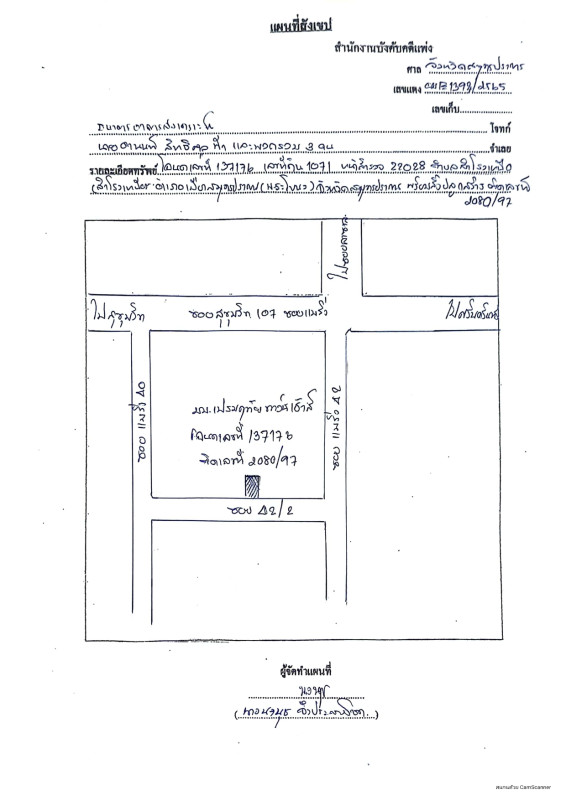 แผนที่สังเขป
สำนักงานบังคับคดีแพ่ง
ศาล จังหวัดสมุทรปราการ
เลขแดง ผบE1393/2565
เลขเก็บ
ธนาคารอาคารสงเคราะห์ โจทก์
ที่ 1 และพวกรวม 3 คน จำเลย
รายละเอียดทรัพย์ โฉนดเลขที่ 137176 เลขที่ดิน 1071 หน้าสำรวจ 22028 ตำบลสำโรงเหนือ
(สำโรงเหนือ) อำเภอเมืองสมุทรปราการ (พระโขนง) จังหวัดสมุทรปราการ พร้อมสิ่งปลูกสร้าง
2080/97
ไปซอย
ไปสุขุมวิท
ซอยสุขุมวิท 107 ซอยแบริ่ง
ไปศรีนครินทร์
ซอย แบริ่ง 50
ซอย แบริ่ง 52
มบ.เปรมฤทัย ทาวน์เฮ้าส์
โฉนดเลขที่ 137176
ติดเลขที่ 2080/97
ซอย 52/2
ผู้จัดทำแผนที่
สแกนด้วย CamScanner